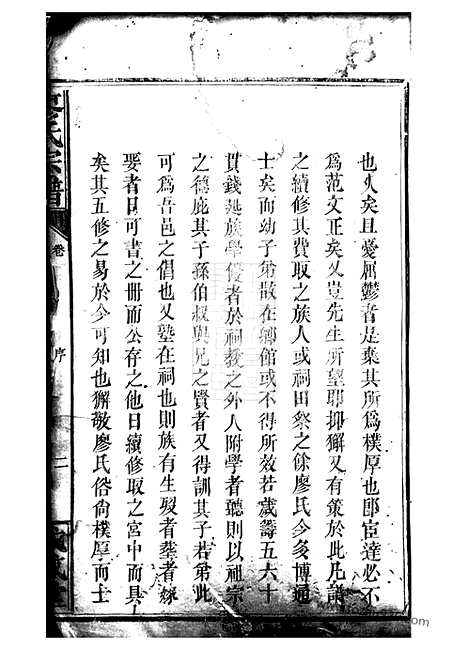 也久矣且憂屬鬱者是棄其所爲樸厚也卽宦達必不
爲范文正矣又豈先生所望耶抑獬又有策於此凡譜
之續修其費取之族人或祠田祭之餘廖氏今多博通
士矣而幼子弟散在鄉館或不得所效若歲籌五六十
貫錢延族學優者於祠教之外人附學者聽則以祖宗
之德庇其子孫伯叔與兄之賢者又得訓其子若弟此
可爲吾邑之倡也又塾在祠也則族有生歿者葬者嫁
娶者日可書之冊而公存之他日續修取之宮中而具
矣其五修之易於今可知也獬敬廖氏俗尚樸厚而士
氏宗譜
卷
序
二